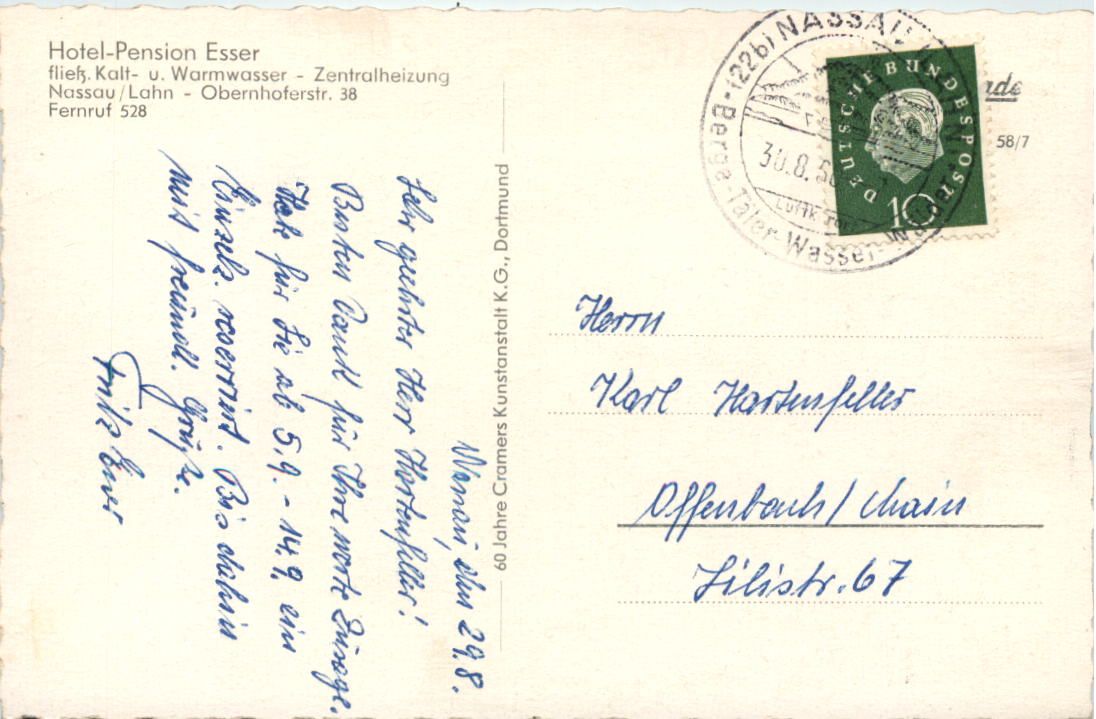 Hotel-Pension Esser
fließ. Kalt- u. Warmwasser - Zentralheizung
Nassau/Lahn - Obernhoferstr. 38
Fernruf 528
Nassau, den 29.8.
Sehr geehrter Herr Hartenfeller!
Besten Dank für Ihre werte Zusage.
Habe für Sie ab 5.9. - 14.9. ein
Einzelz. reserviert. Bis dahin
mit freundl. Grüße.
Fritz Esser
60 Jahre Cramers Kunstanstalt K.G., Dortmund
(22b) NASSAU
30.8.60
Berge-Täler-Wasser-Wälder
DEUTSCHE BUNDESPOST
10
58/7
Herrn
Karl Hartenfeller
Offenbach/Main
Lilistr. 67